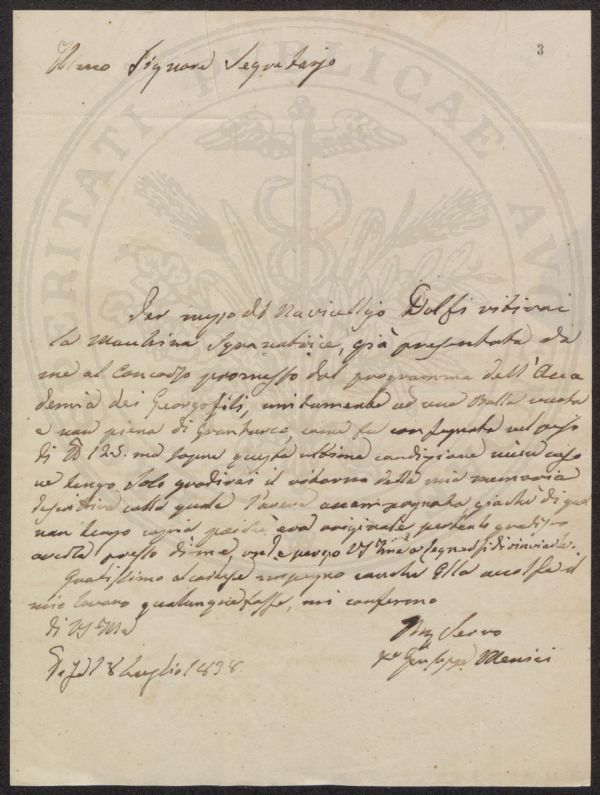 3
Ill.mo Signore Segretario
Per mezzo del Navicellajo Dolfi ritirai
la Macchina Sgranatrice, già presentata da
me al Concorso promesso dal programma dell'Acca
demia dei Georgofili, unitamente ad una Balla vuota
e non piena di granturco, come fu consegnata nel peso
di 125. ma sopra questa ultima condizione niun caso
ne tengo. Solo gradirei il ritorno della mia memoria
descrittiva colla quale l'aveva accompagnata giacchè di quella
non tengo copia poichè era originale, pertanto gradirei
averla presso di me, e la prego
Gratissimo al cortese impegno con che Ella accolse il
mio lavoro qualunque fosse, mi confermo
di VS Ill.ma
Servo
Giuseppe Menici
Pisa 18 Luglio 1838
VERITATI PUBLICAE